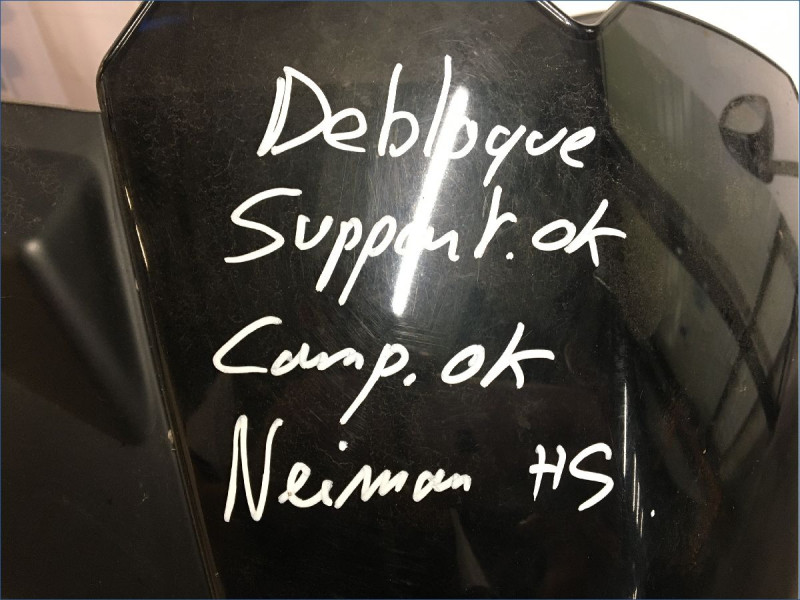 Debloque
Support. ok
Comp. ok
Neiman HS.